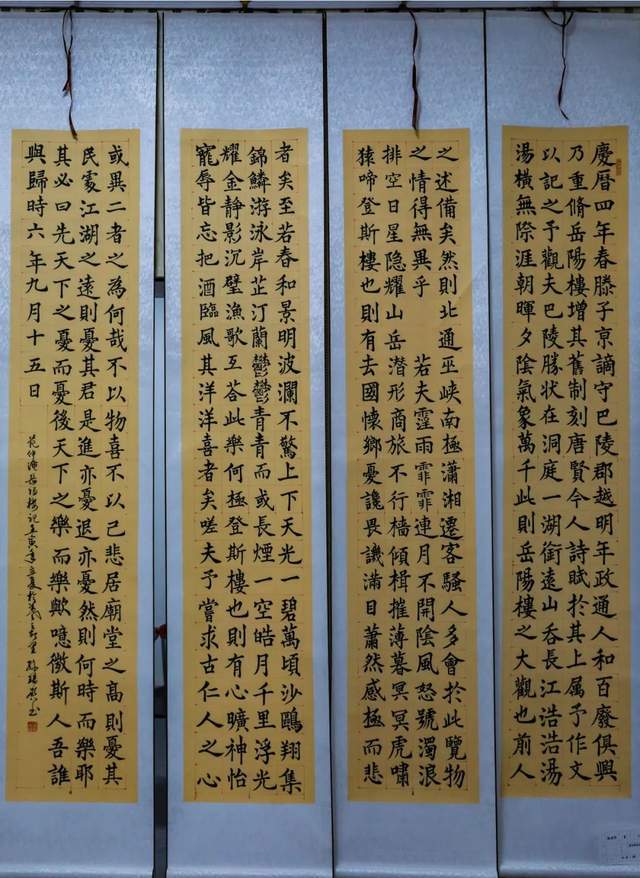 慶曆四年春滕子京謫守巴陵郡越明年政通人和百廢俱興
乃重脩岳陽樓增其舊制刻唐賢今人詩賦於其上属予作文
以記之予觀夫巴陵勝狀在洞庭一湖銜遠山吞長江浩浩湯
湯橫無際涯朝暉夕陰氣象萬千此則岳陽樓之大觀也前人
之述備矣然則北通巫峽南極瀟湘遷客騷人多會於此覽物
之情得無異乎 若夫霪雨霏霏連月不開陰風怒號濁浪
排空日星隐耀山岳潜形商旅不行檣傾楫摧薄暮冥冥虎嘯
猿啼登斯樓也則有去國懷鄉憂讒畏譏滿目蕭然感極而悲
者矣至若春和景明波瀾不驚上下天光一碧萬頃沙鷗翔集
錦鱗游泳岸芷汀蘭鬱鬱青青而或長煙一空皓月千里浮光
耀金靜影沉璧漁歌互荅此樂何極登斯樓也則有心曠神怡
寵辱皆忘把酒臨風其洋洋喜者矣嗟夫予嘗求古仁人之心
或異二者之為何哉不以物喜不以己悲居廟堂之高則憂其
民處江湖之遠則憂其君是進亦憂退亦憂然則何時而樂耶
其必曰先天下之憂而憂後天下之樂而樂歟噫微斯人吾誰
與歸時六年九月十五日
范仲淹岳陽樓記壬寅年